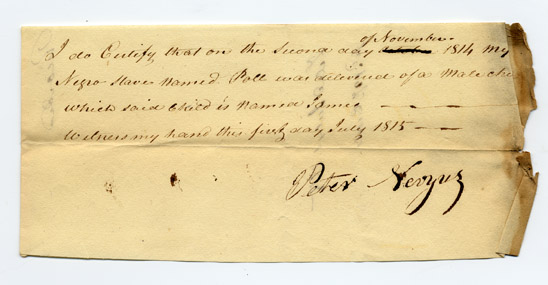 of November
I do Certify that on the Second day 1814 my
Negro Slave named Poll was delivered of a Male Chi
which said Child is named James
Witness my hand this first day July 1815
Peter Nevyus